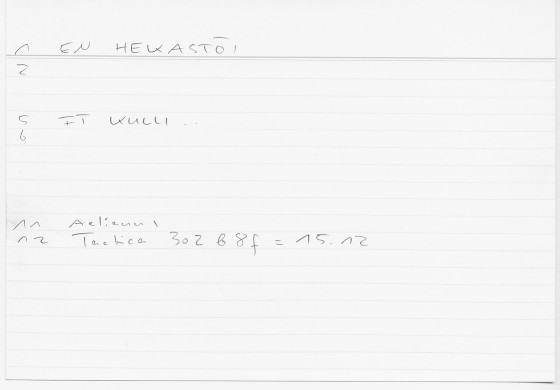 1 EN HEKASTŌI
2
5 FT KULLI ..
6
11 Aelianus
12 Tactica 302 B 8f = 15.12